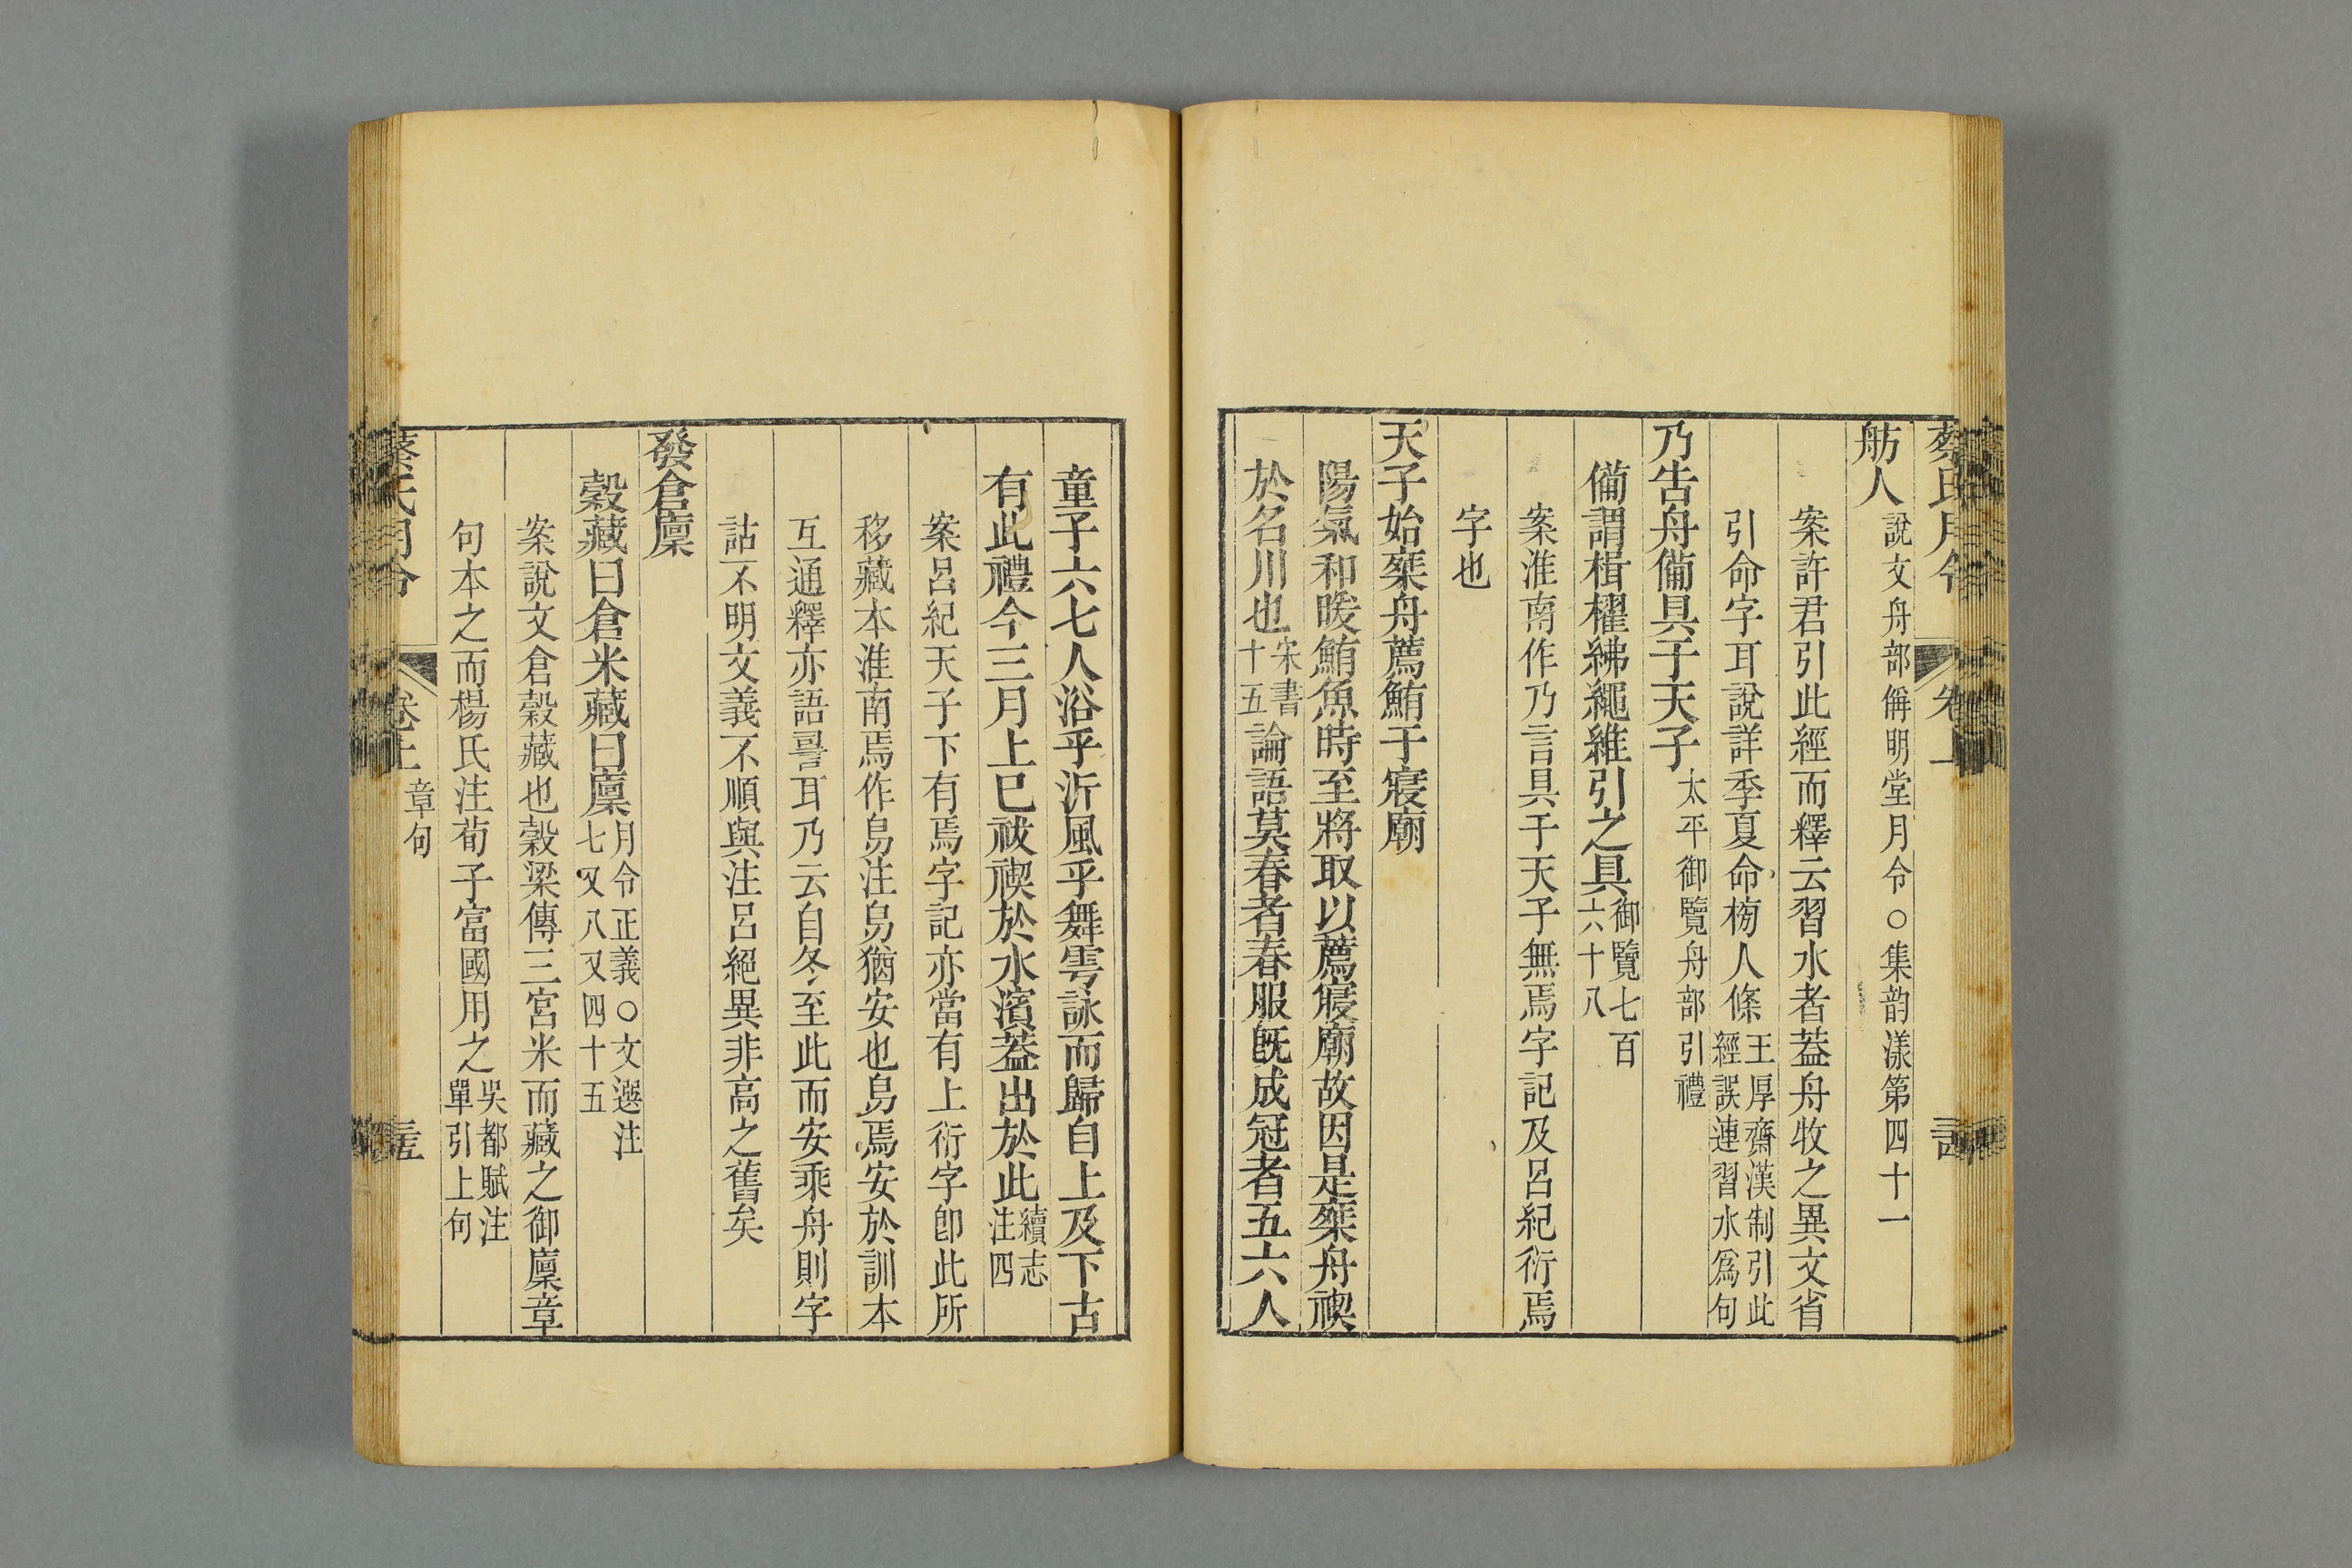 蔡氏月令 卷上
舫人說文舟部偁明堂月令○集韵漾第四十一
案許君引此經而釋云習水者蓋舟牧之異文省
引命字耳說詳季夏命榜人條王厚齋漢制引此經誤連習水爲句
乃告舟僃具于天子太平御覽舟部引禮
僃謂楫櫂紼繩維引之具御覽七百六十八
案淮南作乃言具于天子無焉字記及呂紀衍焉
字也
天子始椉舟薦鮪于寢廟
陽氣和暖鮪魚時至將取以薦寢廟故因是椉舟禊
於名川也宋書十五論語莫春者春服旣成冠者五六人
童子六七人浴乎沂風乎舞雩詠而歸自上及下古
有此禮今三月上巳祓禊於水濱蓋出於此續志注四
案呂紀天子下有焉字記亦當有上衍字卽此所
移藏本淮南焉作舄注舄猶安也舄焉安於訓本
互通釋亦語詞耳乃云自冬至此而安乘舟則字
詁不明文義不順與注呂絕異非高之舊矣
發倉廩
榖藏曰倉米藏曰廩月令正義○文選注七又八又四十五
案說文倉榖藏也榖梁傳三宮米而藏之御廩章
句本之而楊氏注荀子富國用之吳都賦注單引上句
蔡氏月令 卷上 章句